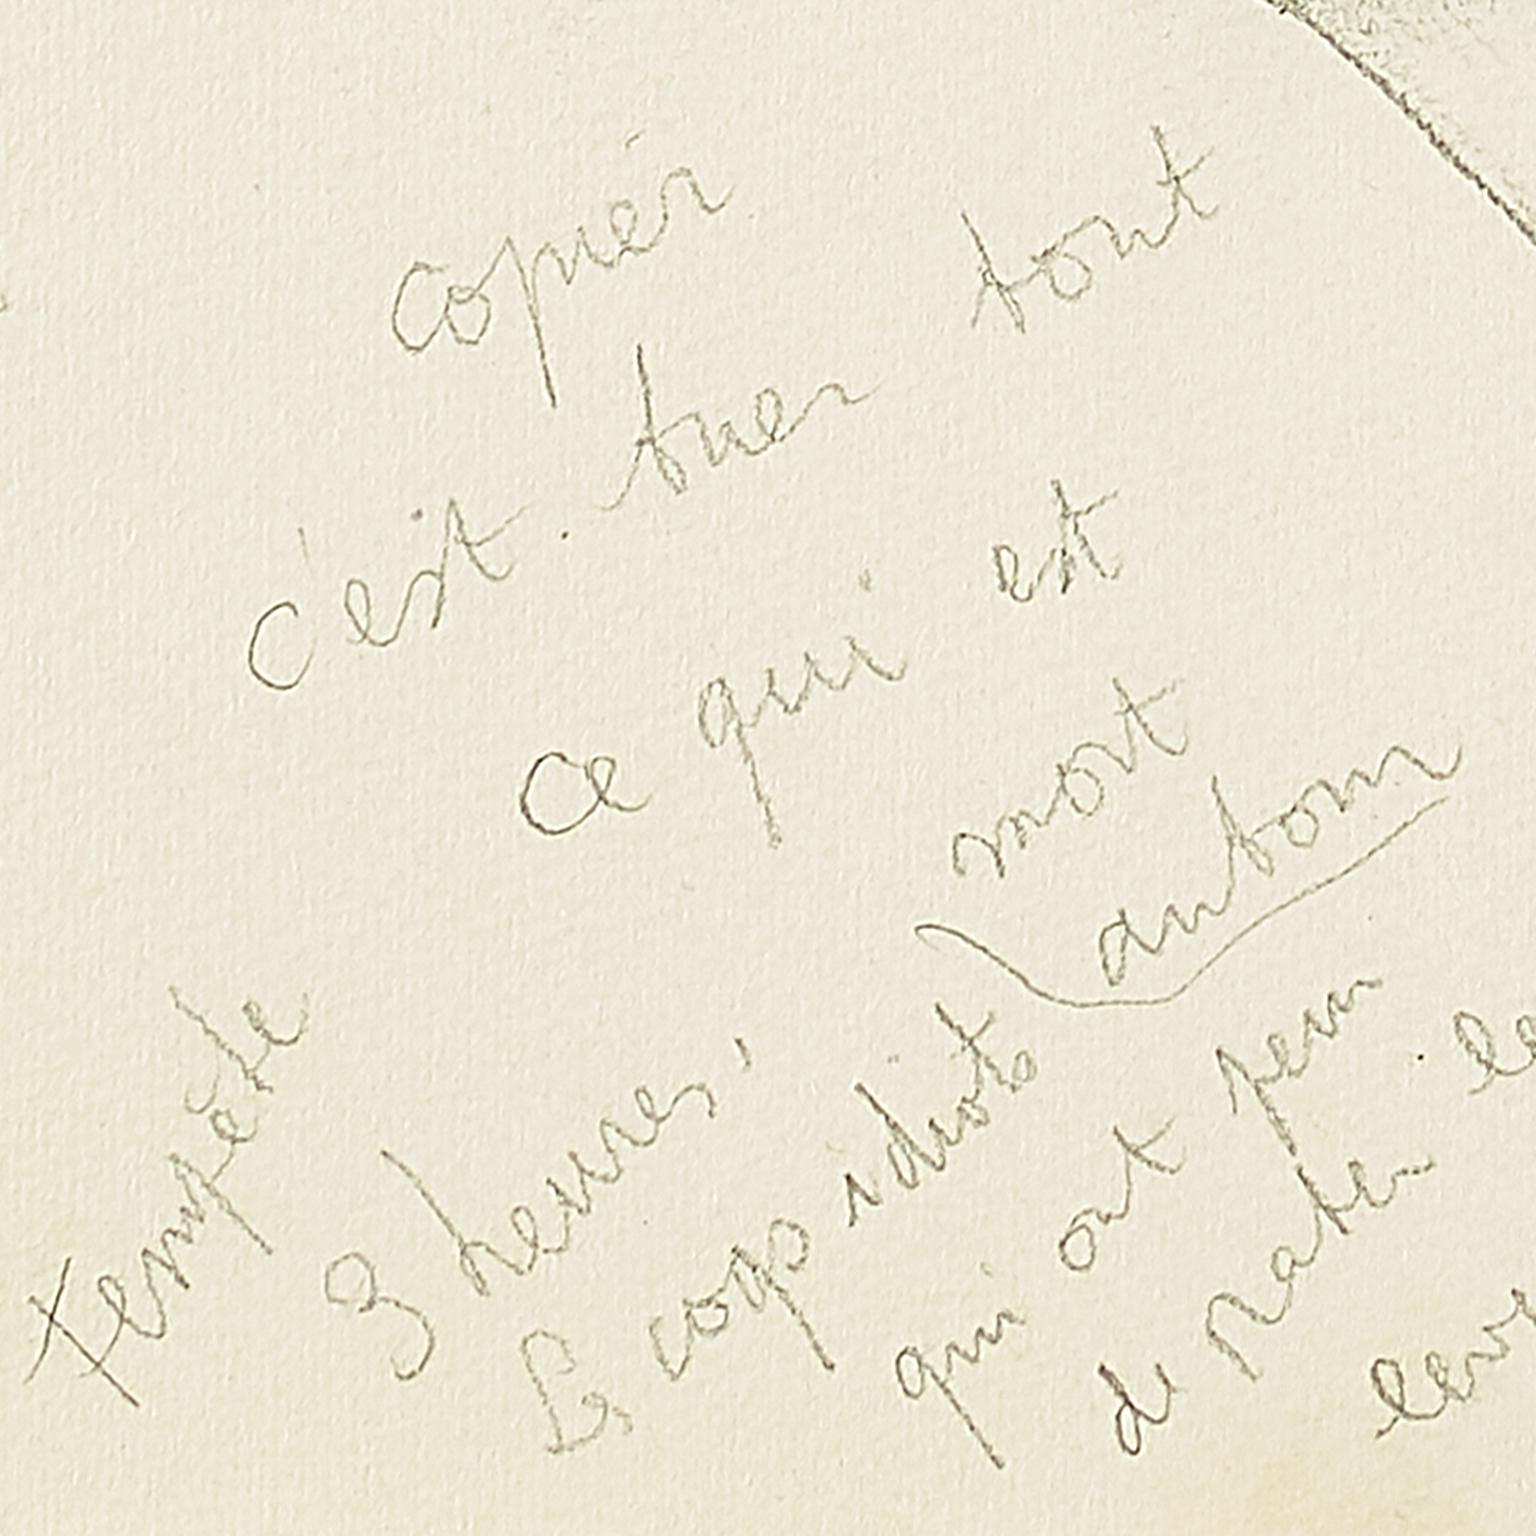 copier
c'est tuer tout
ce qui est
mort
autour
Tempête
3 heures,
Les coqs idiots
qui ont peur
de rater le